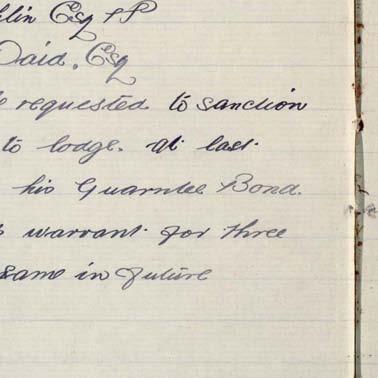 lin Esq JP
Daid, Esq
requested to sanction
to lodge. at last
his Guarntee Bond.
warrant for three
same in future